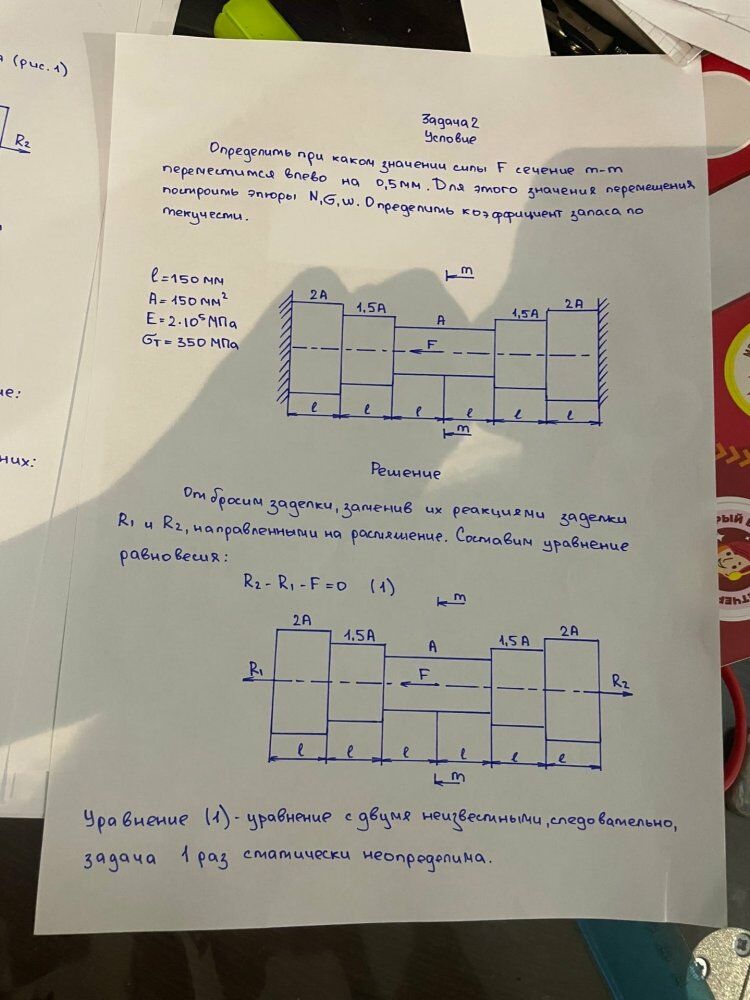 я (рис.1)
R₂
ие:
них:
Задача 2
Условие
Определить при каком значении силы F сечение m-m
переместится влево на 0,5мм. Для этого значения перемещения
построить эпюры N, σ, w. Определить коэффициент запаса по
текучести.
l=150 мм
A=150мм²
E=2·10⁵МПа
σт=350 МПа
m
2A
1,5A
A
1,5A
2A
F
l l l l l l
m
Решение
Отбросим заделки, заменив их реакциями заделки
R₁ и R₂, направленными на растяжение. Составим уравнение
равновесия:
R₂-R₁-F=0 (1)
m
2A
1,5A
A
1,5A
2A
R₁
F
R₂
l l l l l l
m
Уравнение (1)- уравнение с двумя неизвестными, следовательно,
задача 1 раз статически неопределима.